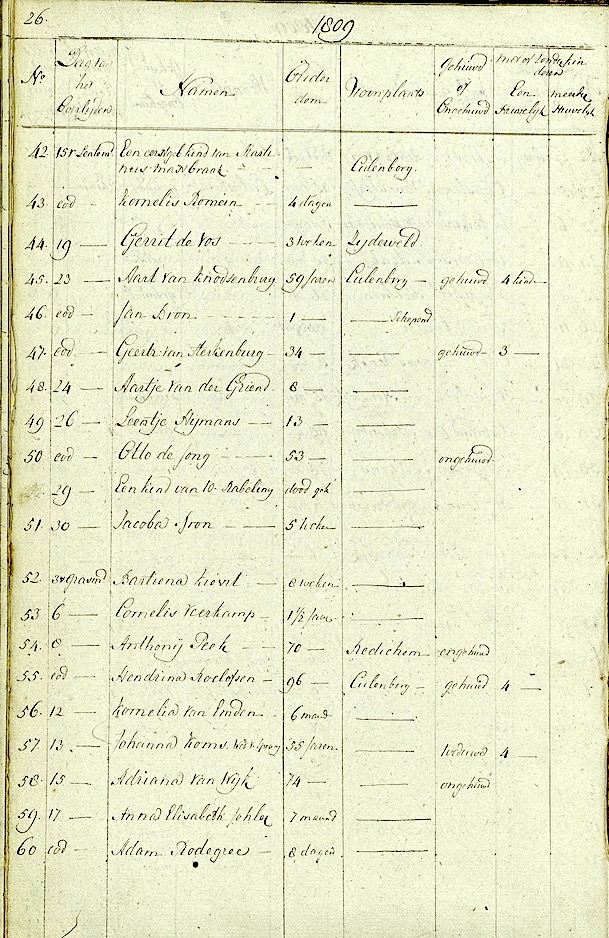 26.
1809
No. Dag van het Overlijden Namen Ouderdom Woonplaats Gehuwd of Ongehuwd met of zonder kinderen Een Huwelijk meerder Huwelijk
42 15r Lentem Een eerstgeb kind van Marti-
nus Maasbraak Culenborg.
43. eod — Kornelis Romein 4 dagen —
44 19 — Gerrit de Vos — 3 weken Zijderveld
45. 23 — Aart van Knodsenburg 59 Jaren Culenborg — gehuwd 4 kind
46. eod — Jan Bron 1 —
47. eod — Geertr van Sterkenburg — 34 — — gehuwd — 3 —
48. 24 — Aartje van der Griend 8 — —
49 26 — Leentje Hymans — 13 — —
50 eod — Otto de Jong 53 — — ongehuwd
29 — Een kind van W. Rabeling dood geb —
51. 30 — Jacoba Bron — 5 weken —
52. 3r Grasmd Bartiena Kievit — 8 weken —
53 6 — Cornelis Veerkamp — 1 1/2 Jaar —
54. 8 — Anthonij Peek — 70 — Redichem ongehuwd
55. eod — Hendrina Roelofsen — 96 — Culenborg — gehuwd 4 —
56. 12 — Kornelia van Emden — 6 maand —
57. 13 — Johanna Koms 55 Jaren — weduwe 4 —
58. 15 — Adriana van Wijk 74 — — ongehuwd
59. 17 — Anna Elisabeth 7 maand —
60 eod — Adam Rodegree — 8 dagen —